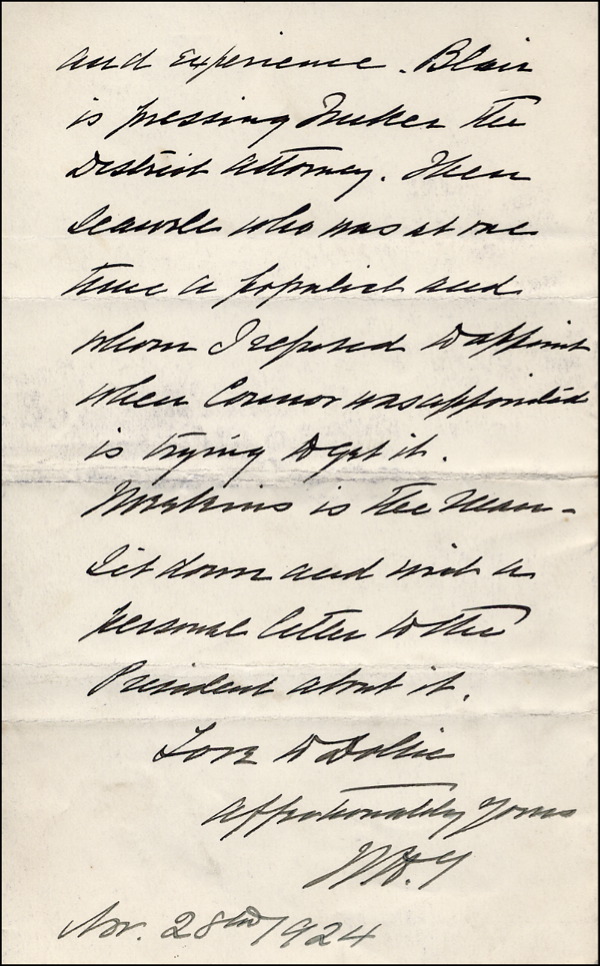 and experience. Blair
is pressing Tucker the
District Attorney. Then
Seawell who was at one
time a populist and
whom I refused to appoint
when Connor was appointed
is trying to get it.
Meekins is the man -
Sit down and write a
personal letter to the
President about it.
Love to Dollie
Affectionately Yours
WHT
Nov. 28th 1924